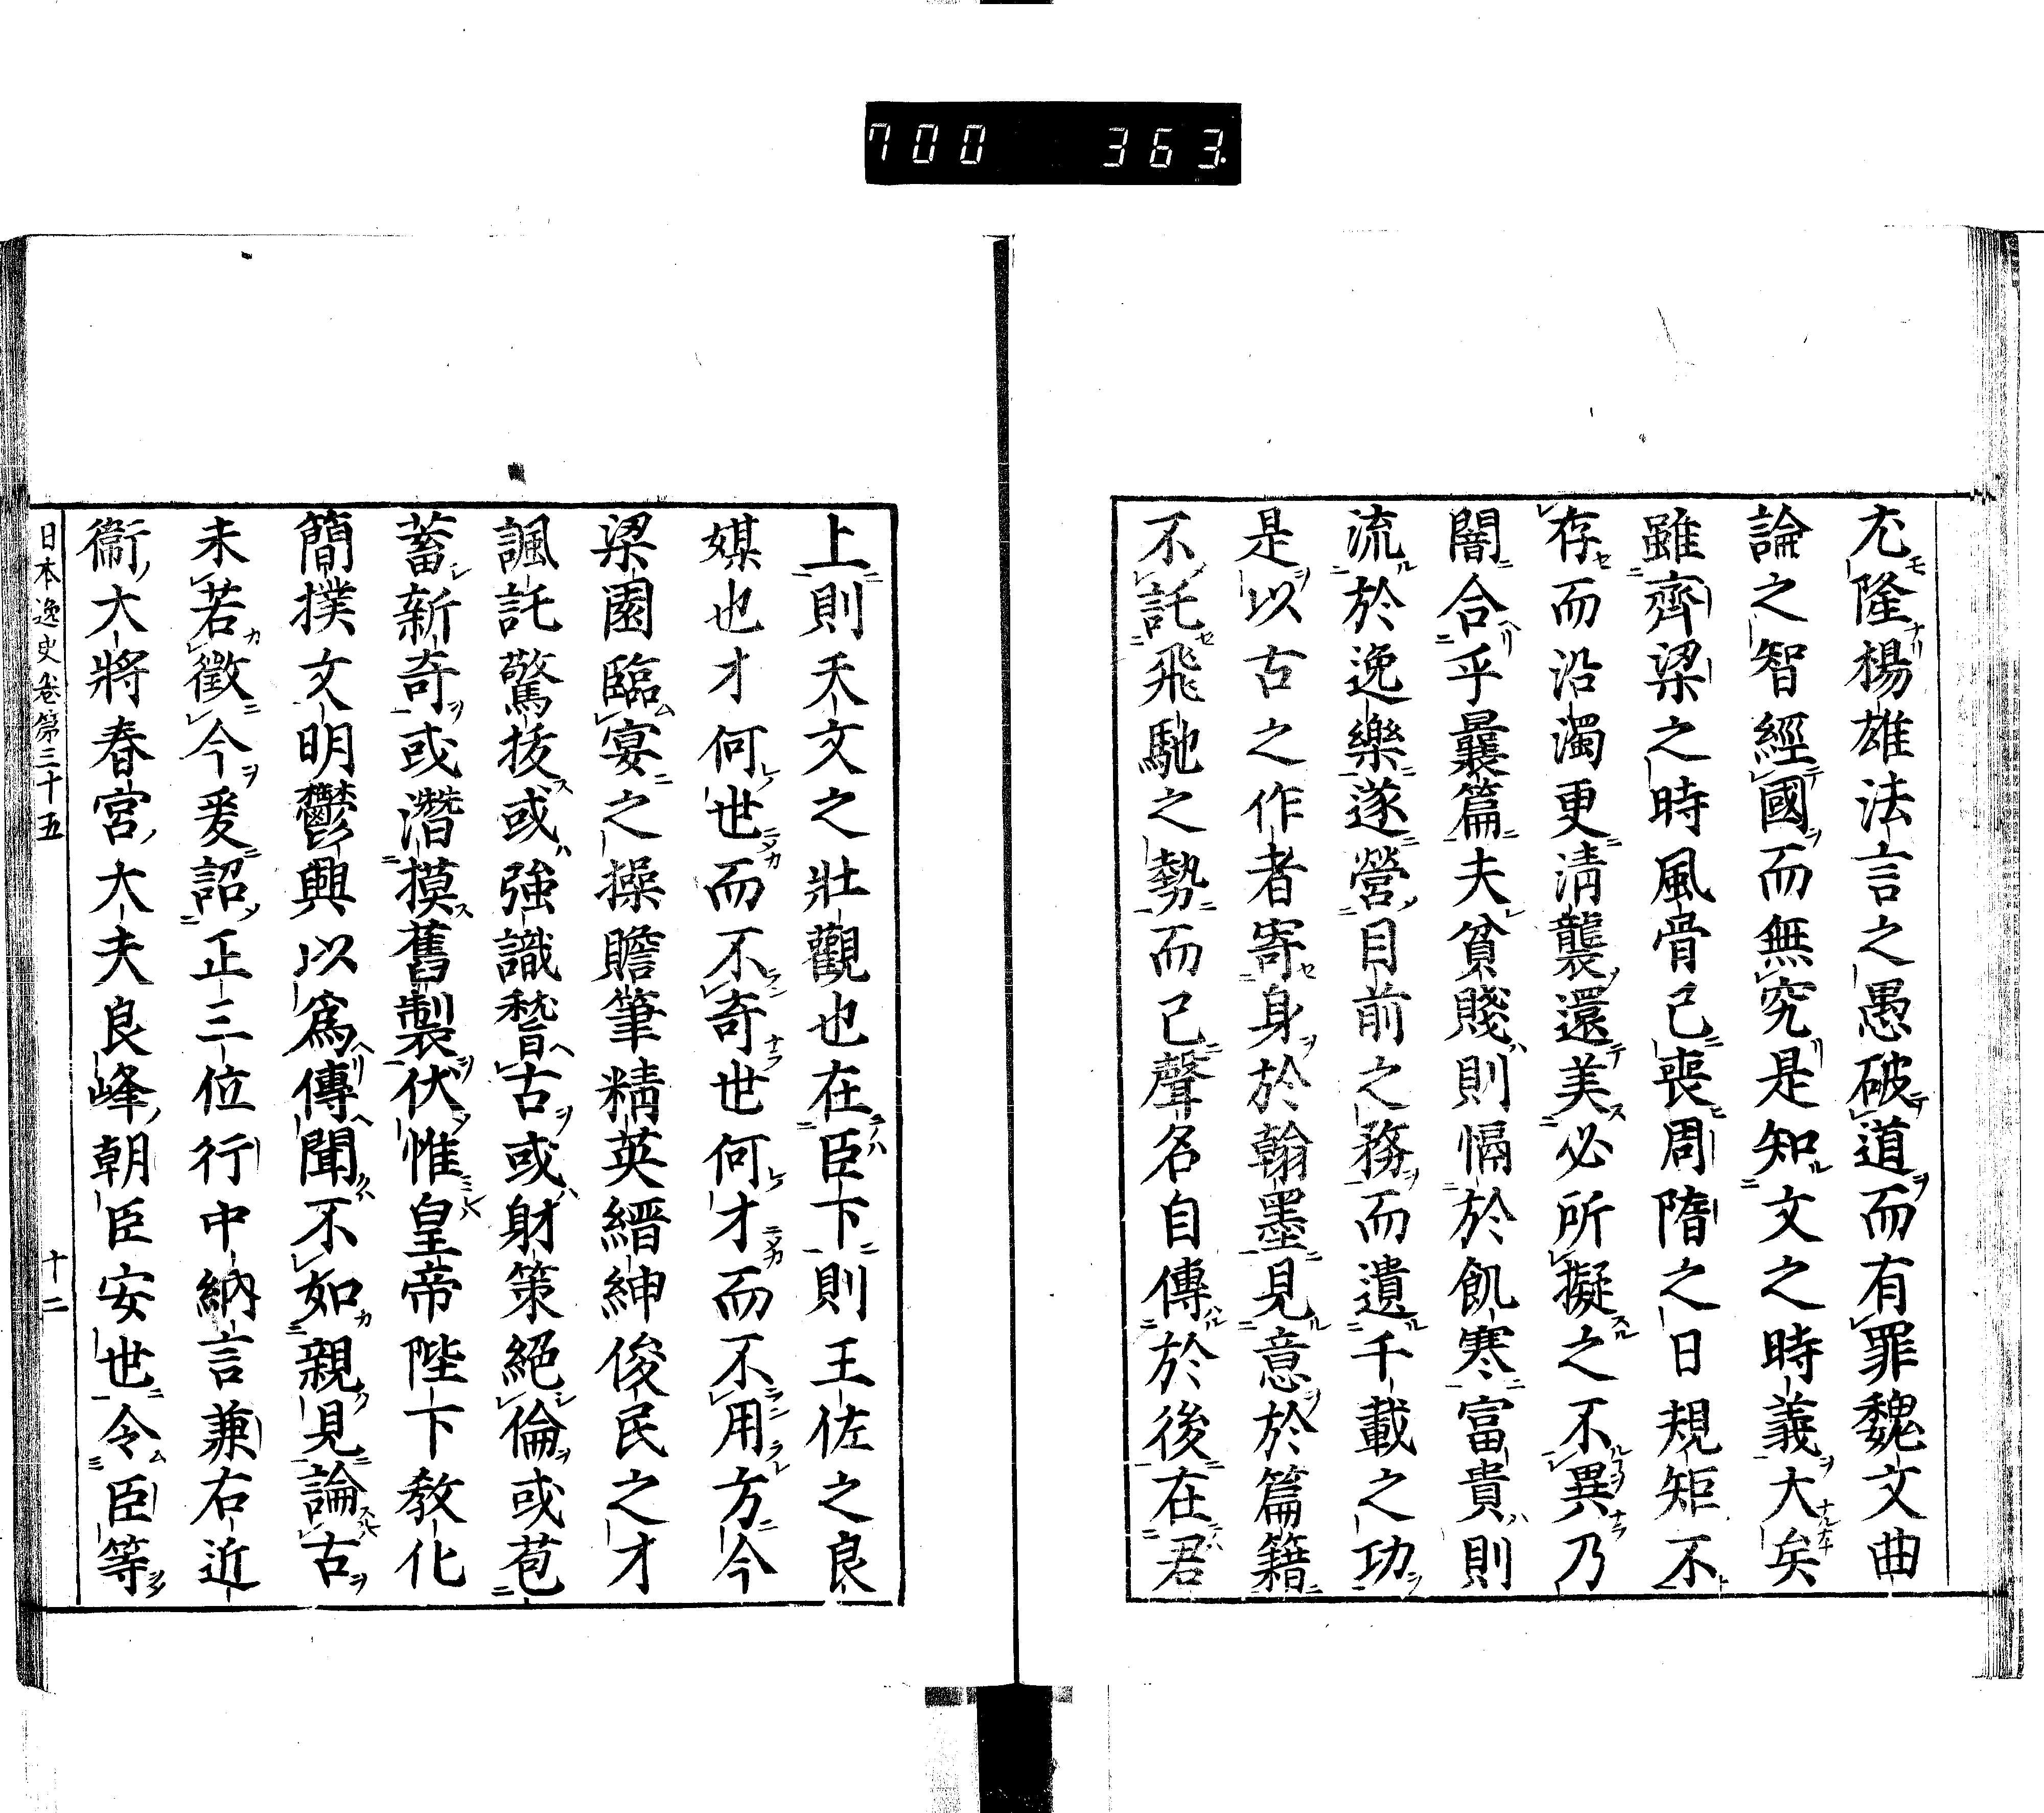 700 363
尤隆楊雄法言之愚破道而有罪魏文曲
論之智經國而無究是知文之時義大矣
雖齊梁之時風骨已喪周隋之日規矩不
存而沿濁更淸襲還美必所擬之不異乃
闇合乎曩篇夫貧賤則慲於飢寒富貴則
流於逸樂遂營目前之務而遺千載之功
是以古之作者寄身於翰墨見意於篇籍
不託飛馳之勢而已聲名自傳於後在君
上則天文之壯觀也在臣下則王佐之良
媒也才何世而不奇世何才而不用方今
梁園臨宴之操贍筆精英縉紳俊民之才
諷託驚拔或強識稽古或射策絕倫或苞
蓄新奇或潛摸舊製伏惟皇帝陛下教化
簡撲文明鬱興以爲傳聞不如親見論古
未若徵今爰詔正三位行中納言兼右近
衞大將春宮大夫良峰朝臣安世令臣等
日本逸史卷第三十五 十二